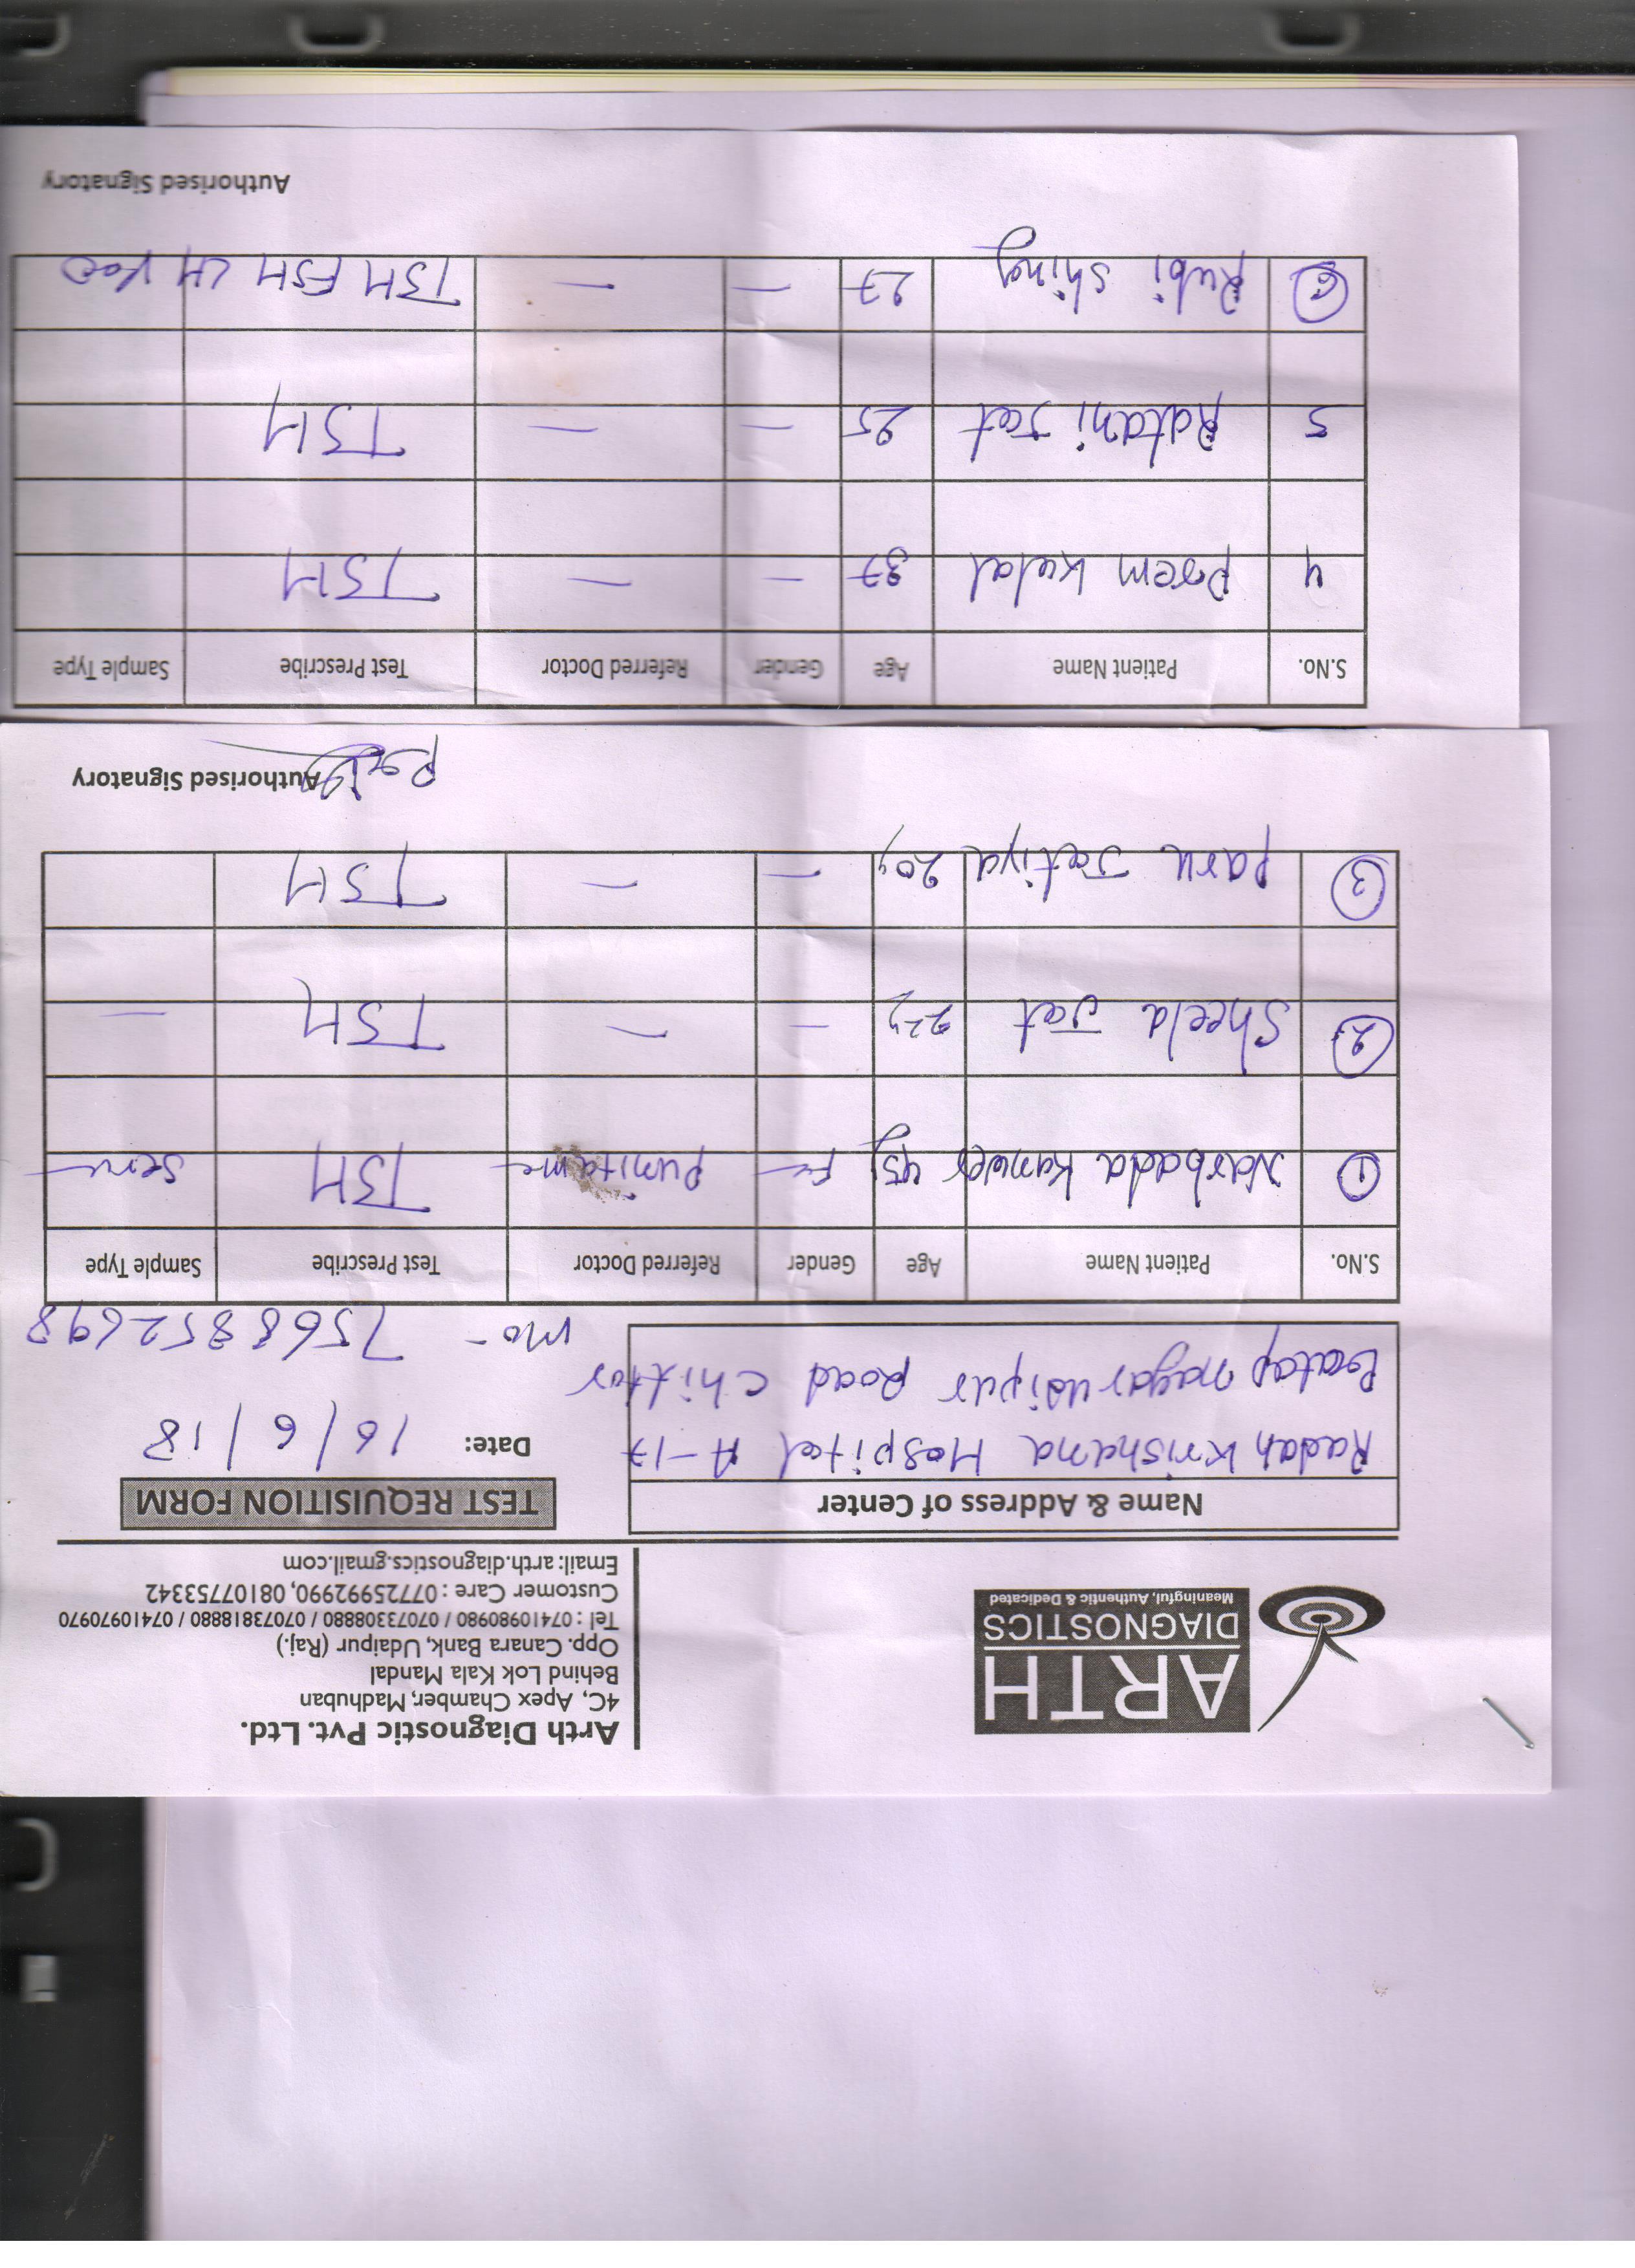 ARTH
DIAGNOSTICS
Meaningful, Authentic & Dedicated
Arth Diagnostic Pvt. Ltd.
4C, Apex Chamber, Madhuban
Behind Lok Kala Mandal
Opp. Canara Bank, Udaipur (Raj.)
Tel : 07410980980 / 07073308880 / 07073818880 / 07410970970
Customer Care : 07725992990, 08107753342
Email: arth.diagnostics.gmail.com
Name & Address of Center
TEST REQUISITION FORM
Radah Krishana Hospital A-17
Date: 16/6/18
Pratap nagar udipur Road Chittor
mo- 7568852698
S.No. Patient Name Age Gender Referred Doctor Test Prescribe Sample Type
1 Narbada Kunwer 45y Fe Punitame TSH Seru
2 Sheela Jat 22y - - TSH -
3 Paru Jatiya 20y - - TSH
Authorised Signatory
S.No. Patient Name Age Gender Referred Doctor Test Prescribe Sample Type
4 Prem Kulal 37 - - TSH
5 Ratani Jat 25 - - TSH
6 Rubi Shing 27 - - TSH FSH LH
Authorised Signatory